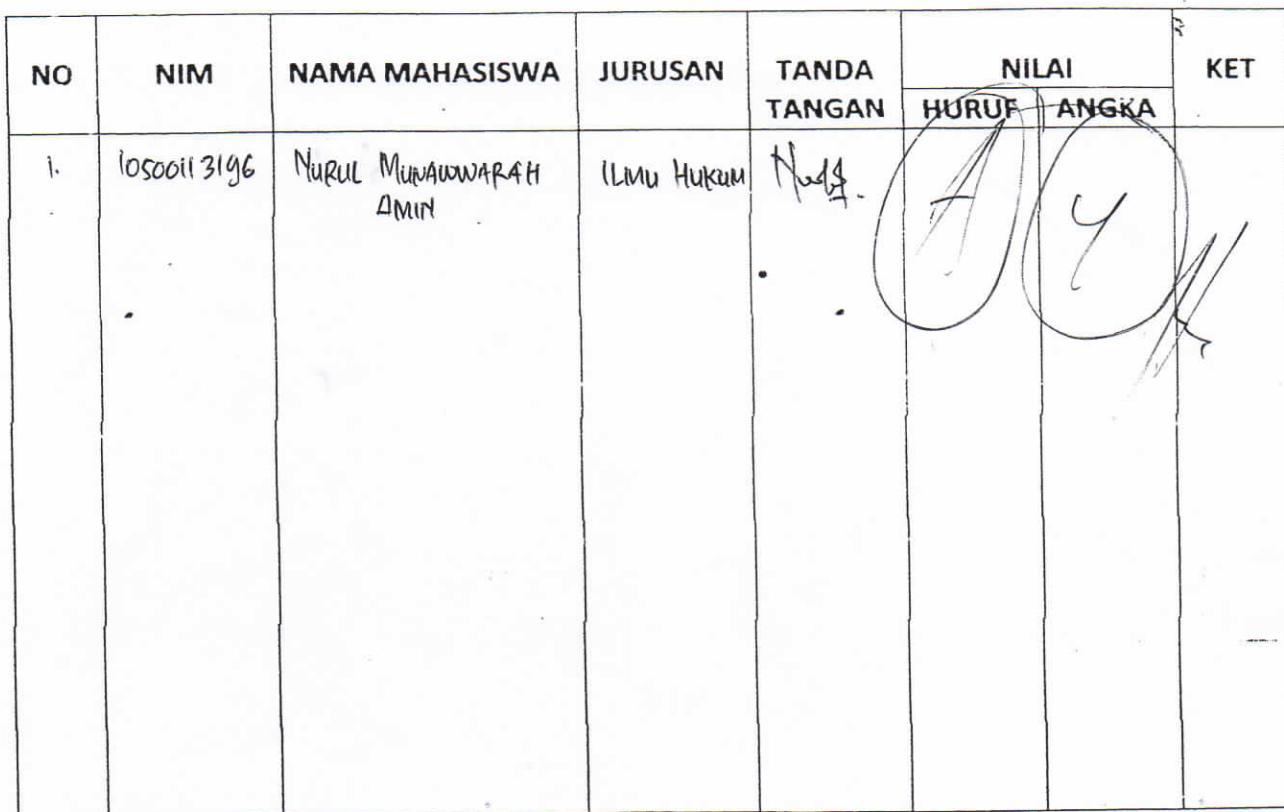 NO NIM NAMA MAHASISWA JURUSAN TANDA TANGAN NILAI KET
HURUF ANGKA
1. 10500113196 NURUL MUNAWWARAH AMIN ILMU HUKUM A 4